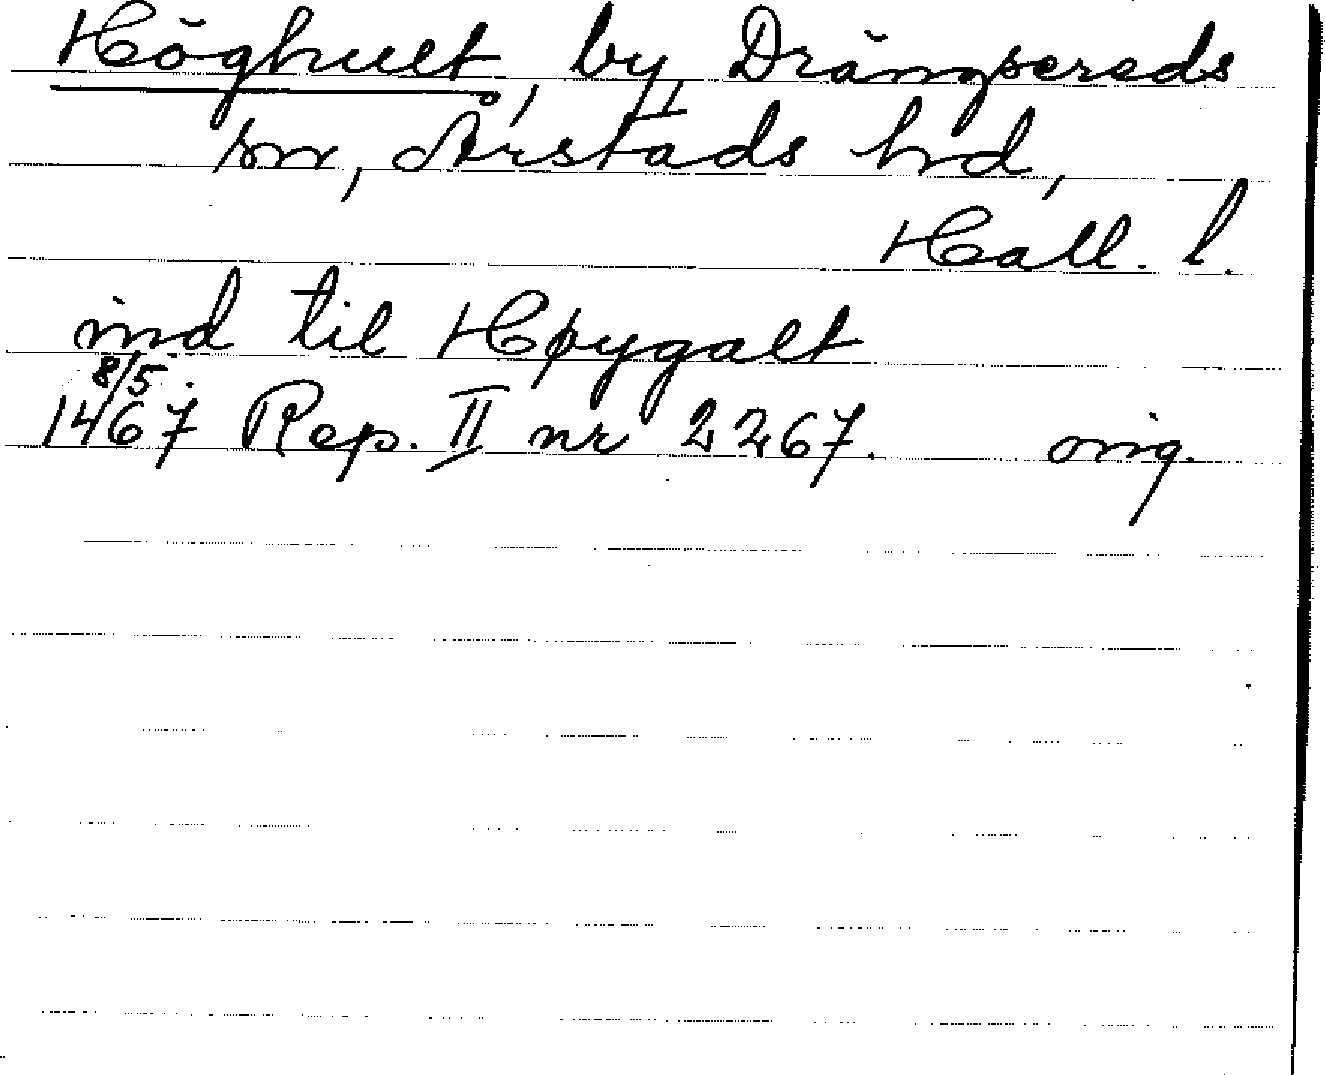 Höghult, by, Drängsereds
sn, Årstads hd,
Hall. l.
ind til Høygalt
8/5.
1467 Rep. II nr 2267. orig.